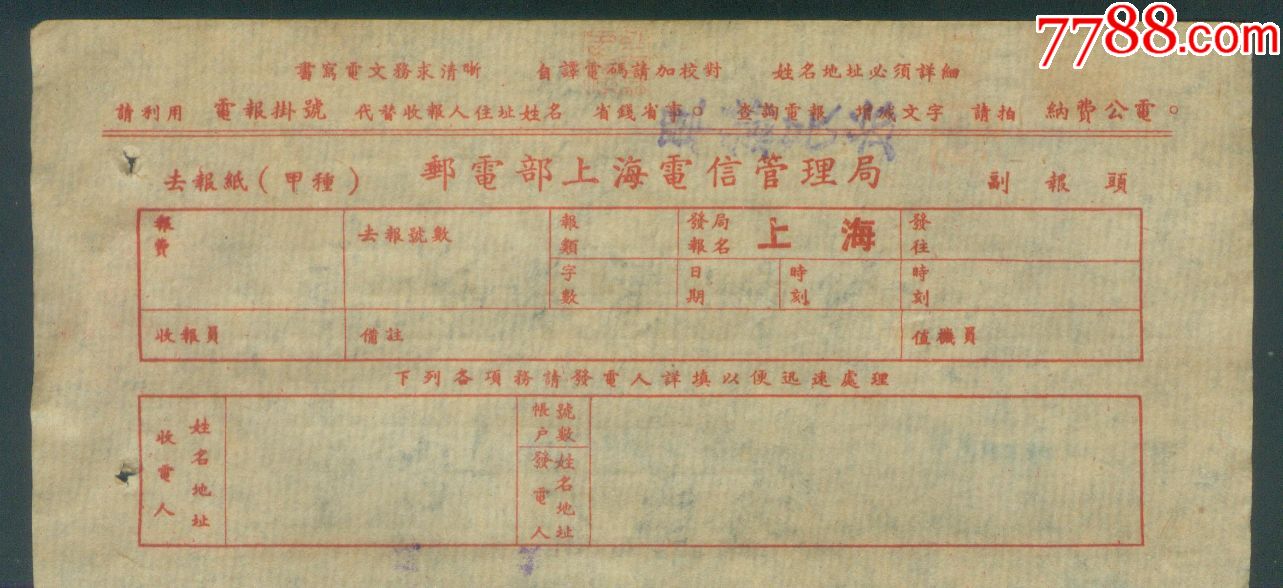 7788.com
書寫電文務求清晰 自譯電碼請加校對 姓名地址必須詳細
請利用 電報掛號 代替收報人住址姓名 省錢省事。 查詢電報 增減文字 請拍 納費公電。
去報紙（甲種） 郵電部上海電信管理局 副報頭
報費 去報號數 報類 發報局名 上海 發往
字數 日期 時刻 時刻
收報員 備註 值機員
下列各項務請發電人詳填以便迅速處理
收電人 姓名地址 帳戶號數
發電人 姓名地址